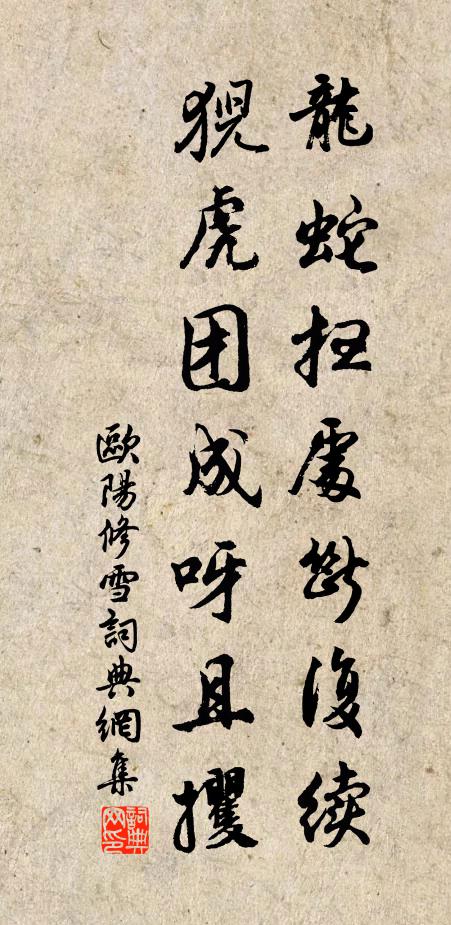 龍蛇扫處斷復续
猊虎团成呀且攫
歐陽修雪詞典網集
詞典网印